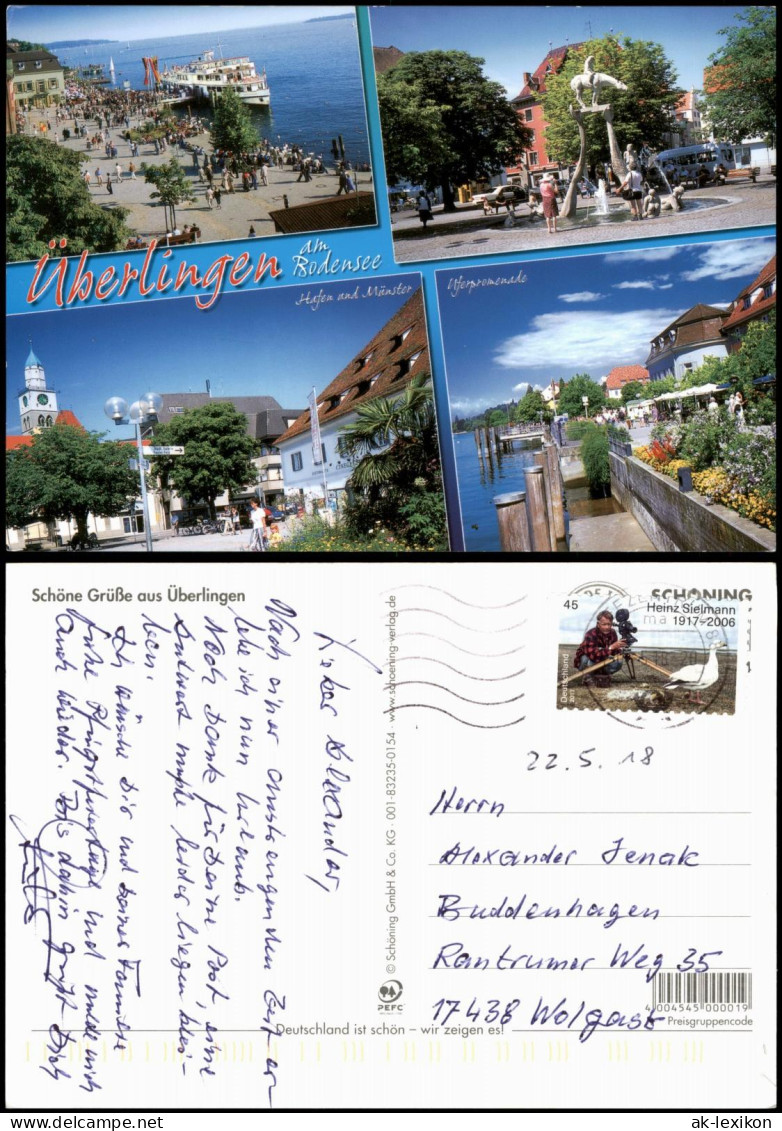 Überlingen
am
Bodensee
Hafen und Münster
Uferpromenade
Schöne Grüße aus Überlingen
Lieber Alexander,
Nach einer anstrengenden Zeit er-
hole ich nun Urlaub.
Noch Dank für Deine Post, eine
Antwort mußte leider liegen blei-
ben.
Ich wünsche Dir und Deiner Familie
frohe Pfingstfeiertage und melde mich
auch wieder. Bis dahin grüßt Dich
© Schöning GmbH & Co. KG · 001-83235-0154 · www.schoening-verlag.de
PEFC
SCHÖNING
45
Heinz Sielmann
1917–2006
Deutschland
22.5.18
Herrn
Alexander Jenak
Buddenhagen
Rantrumer Weg 35
17438 Wolgast
4 004545 000019
Preisgruppencode
Deutschland ist schön – wir zeigen es!
ak-lexikon